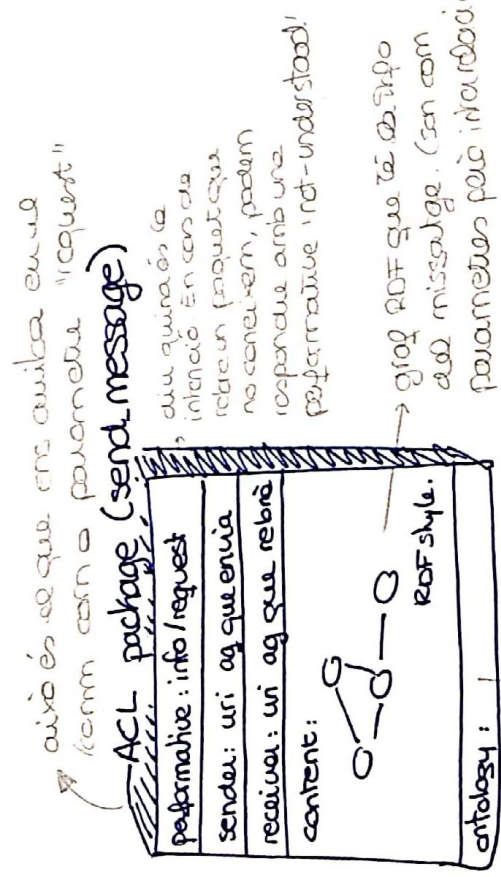 això és el que ens arriba en el
/comm com a parametre "request"
ACL package (send_message)
performative: info/request
sender: uri ag que envia
receiver: uri ag que rebrà
content:
RDF style.
ontology: /
diu quina és la
intenció. En cas de
rebre un paquet que
no coneixem, podem
respondre amb una
performative 'not-understood'
graf RDF que té la info
del missatge. (son com
parametres però